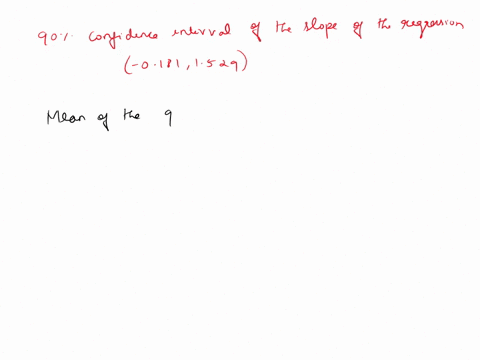 90% confidence interval of the slope of the regression
(-0.181, 1.529)
Mean of the 9